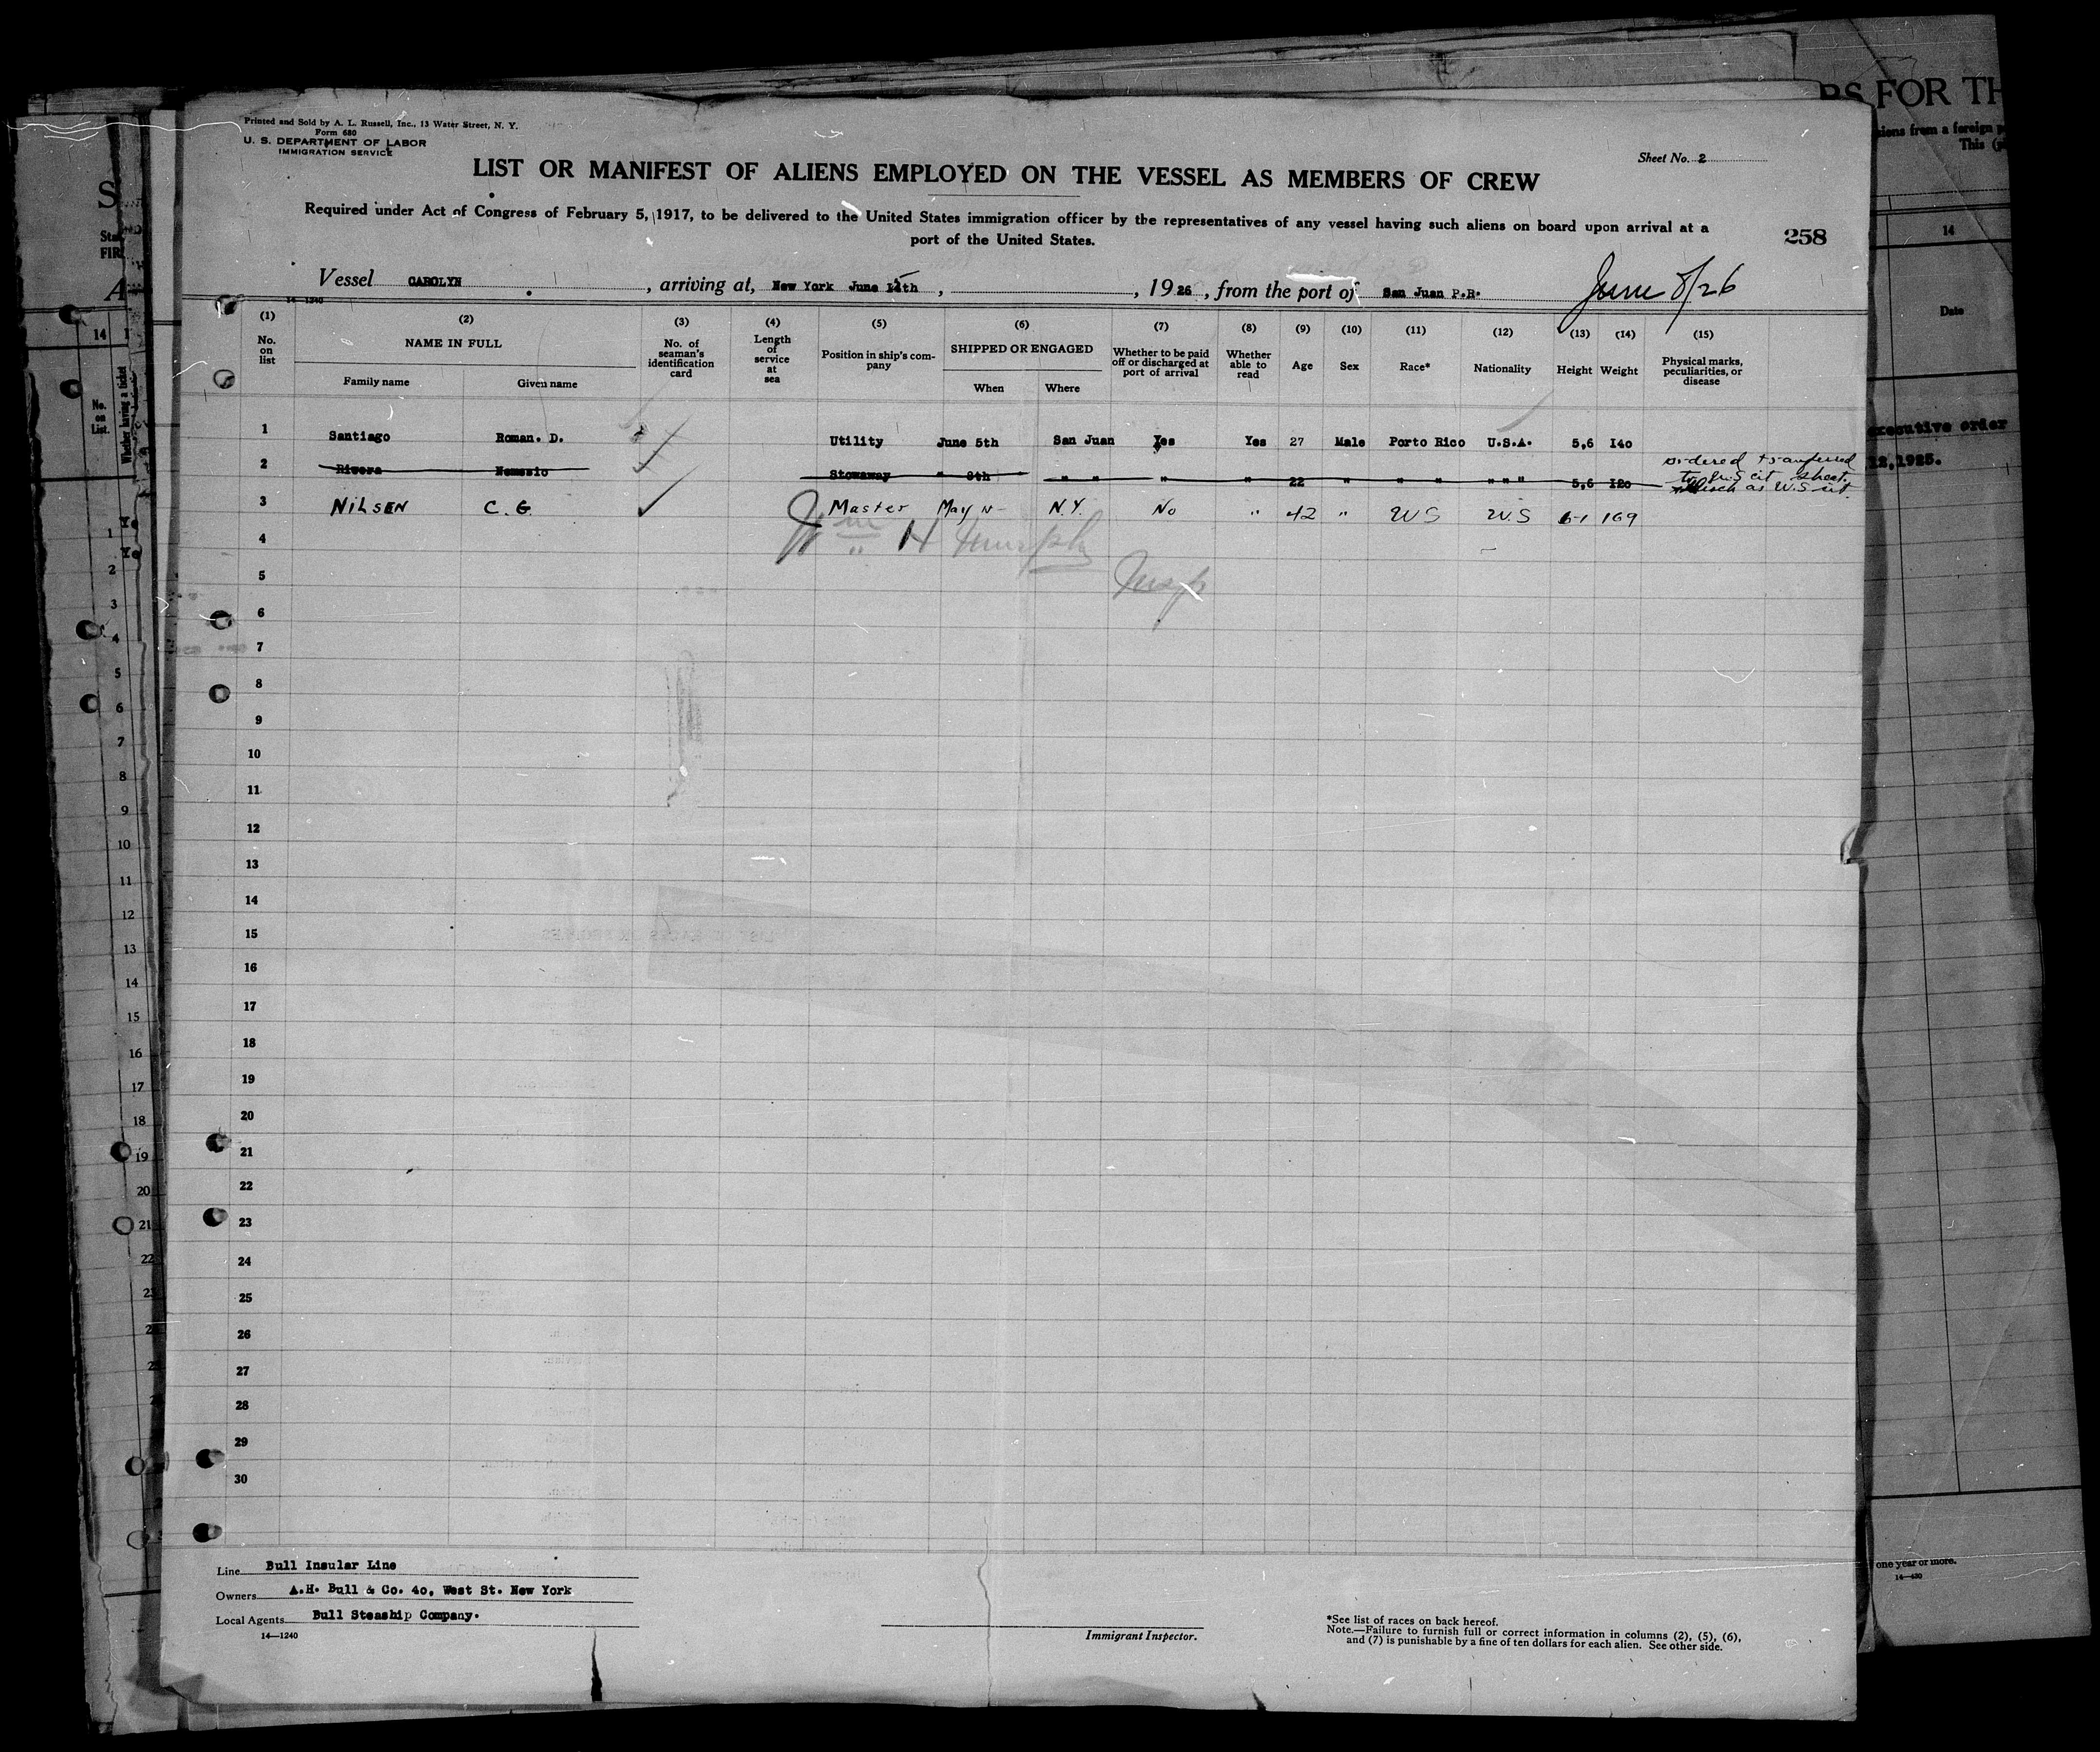 Printed and Sold by A. L. Russell, Inc., 13 Water Street, N. Y.
Form 680
U. S. DEPARTMENT OF LABOR
IMMIGRATION SERVICE
Sheet No. 2
LIST OR MANIFEST OF ALIENS EMPLOYED ON THE VESSEL AS MEMBERS OF CREW
Required under Act of Congress of February 5, 1917, to be delivered to the United States immigration officer by the representatives of any vessel having such aliens on board upon arrival at a
port of the United States.
258
Vessel CAROLYN, arriving at, New York June 14th, 1926, from the port of San Juan P.R. June 8/26
14-1240
(1) No. on list
(2) NAME IN FULL
Family name Given name
(3) No. of seaman's identification card
(4) Length of service at sea
(5) Position in ship's company
(6) SHIPPED OR ENGAGED
When Where
(7) Whether to be paid off or discharged at port of arrival
(8) Whether able to read
(9) Age
(10) Sex
(11) Race*
(12) Nationality
(13) Height
(14) Weight
(15) Physical marks, peculiarities, or disease
1 Santiago Roman. D. Utility June 5th San Juan Yes Yes 27 Male Porto Rico U.S.A. 5,6 140
2 Rivera Nemesio Stowaway " 8th " " " " 22 " " " " " " 5,6 120 ordered transferred
to U.S cit. sheet.
as U.S cit.
3 NILSEN C. G. Master May N.Y. No " 42 " US U.S 6-1 169
4
5
6
7
8
9
10
11
12
13
14
15
16
17
18
19
20
21
22
23
24
25
26
27
28
29
30
Line Bull Insular Line
Owners A.H. Bull & Co. 40, West St. New York
Local Agents Bull Steaship Company.
14—1240
Immigrant Inspector.
*See list of races on back hereof.
Note.—Failure to furnish full or correct information in columns (2), (5), (6),
and (7) is punishable by a fine of ten dollars for each alien. See other side.
RS FOR TH
sions from a foreign
This
14
Date
executive order
12,1925.
one year or more.
14—430